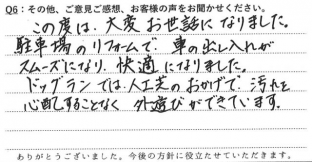 Q6：その他、ご意見ご感想、お客様の声をお聞かせください。
この度は、大変お世話になりました。
駐車場のリフォームで、車の出し入れが
スムーズになり、快適になりました。
ドッグランでは、人工芝のおかげで、汚れを
心配することなく外遊びができています。
ありがとうございました。今後の方針に役立たせていただきます。